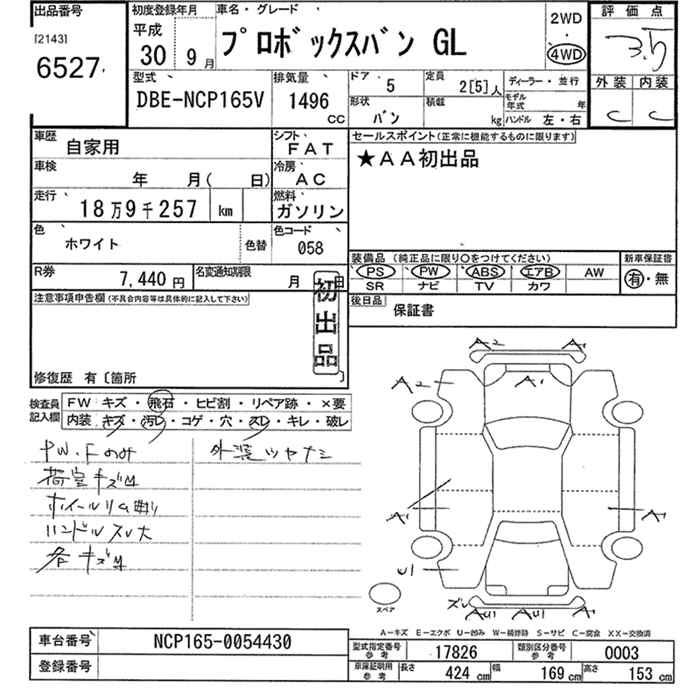 出品番号
[2143]
6527
初度登録年月
平成
30年 9月
車名・グレード
プロボックスバン GL
2WD
・
4WD
評価点
3.5
外装 内装
C C
型式
DBE-NCP165V
排気量
1496
cc
ドア 5
定員 2[5]人
形状 バン
積載 kg
ディーラー・並行
モデル年式 年
ハンドル 左・右
車歴 自家用
シフト FAT
車検 年 月( 日)
冷房 AC
走行 18万9千257 km
燃料 ガソリン
色 ホワイト 色替
色コード 058
R券 7,440円
名変通知期限 月 日
セールスポイント(正常に機能するものに限ります)
★AA初出品
装備品 (純正品に限り○をつけてください)
新車保証書
PS PW ABS エアB AW
SR ナビ TV カワ
有・無
後日品 保証書
注意事項申告欄(不具合内容等は具体的に記入して下さい)
初出品
修復歴 有〔箇所 〕
検査員記入欄
FW キズ・飛石・ヒビ割・リペア跡・×要
内装・キズ・汚レ・コゲ・穴・スレ・キレ・破レ
PW.Fのみ 外装ツヤナミ
荷室キズ凹
ホイールリム
ハンドルスレ大
各キズ凹
A2 A
A2 A1
A A
U1
スペア
ズレ AU1 AU1 A
A-キズ E-エクボ U-凹み W-補修跡 S-サビ C-腐食 XX-交換済
車台番号 NCP165-0054430
登録番号
型式指定番号 参考 17826
類別区分番号 参考 0003
車庫証明用 参考 長さ 424cm 幅 169cm 高さ 153cm